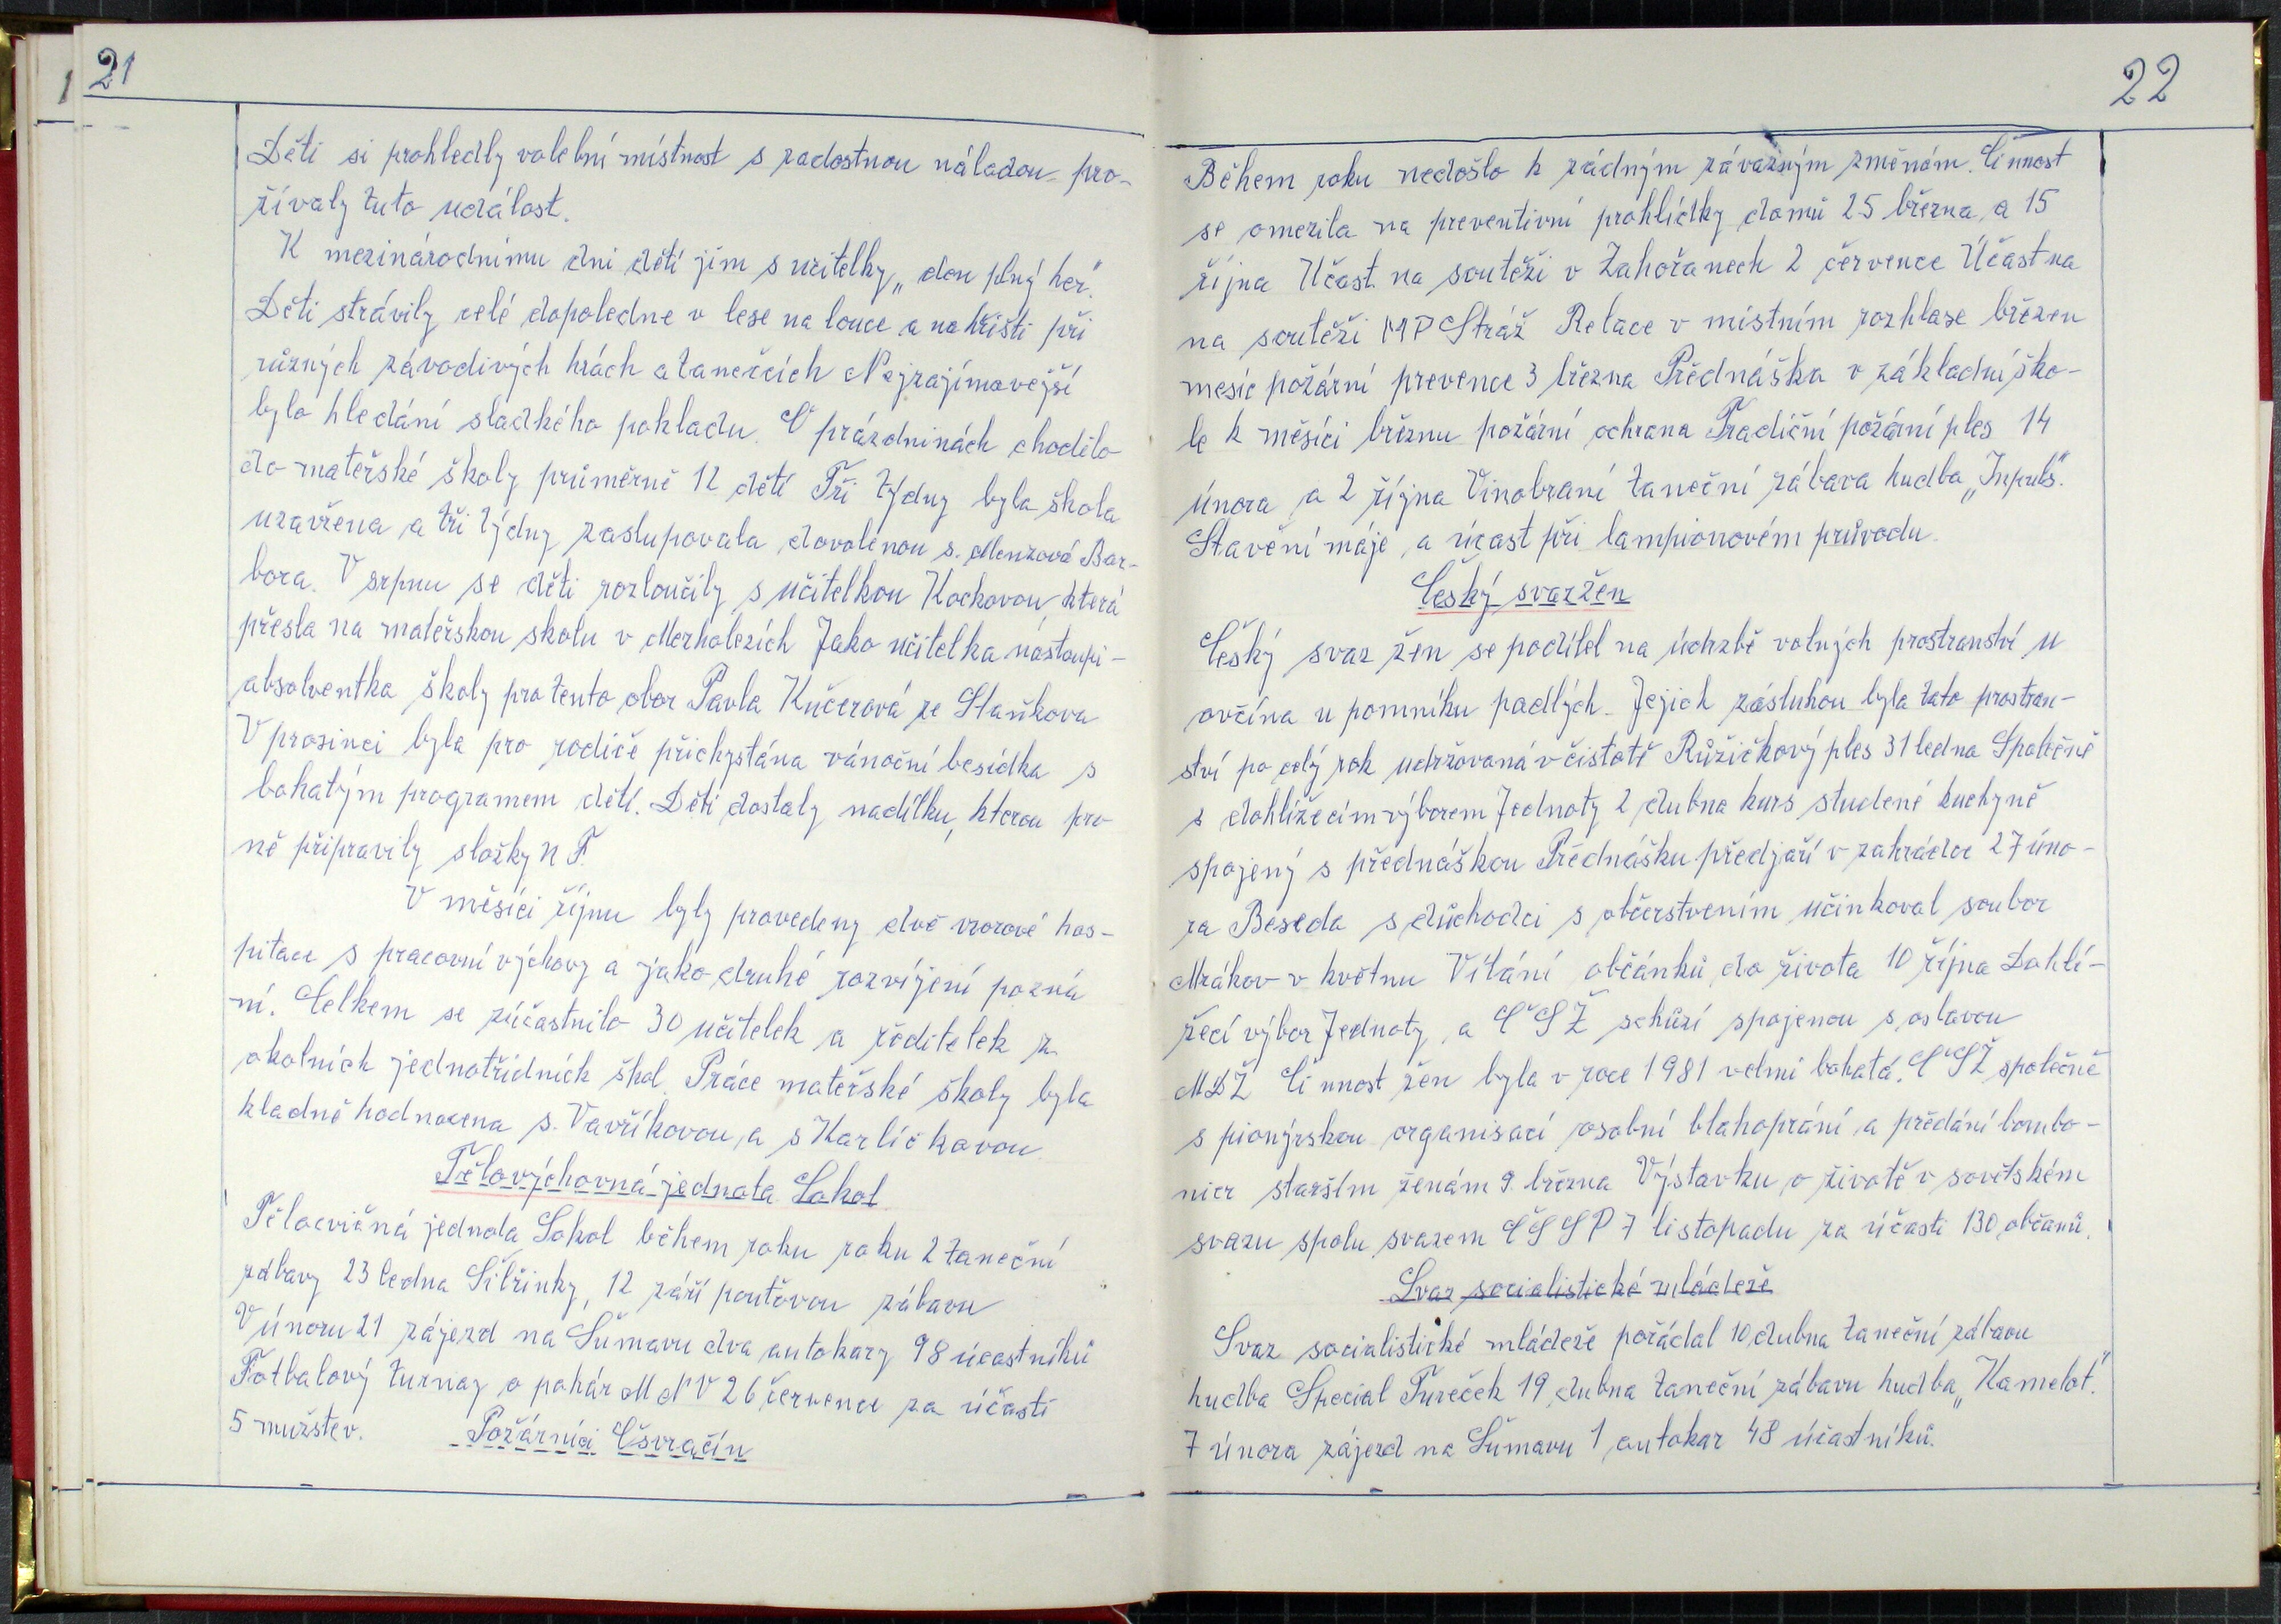 21
Děti si prohledly volební místnost s radostnou náladou pro-
žívaly tuto událost.
K mezinárodnímu dni dětí jim s učitelky „den plný her".
Děti strávily celé dopoledne v lese na louce a na hřišti při
různých závodivých hrách a tanečcích Nejzajímavější
bylo hledání sladkého pokladu. O prázdninách chodilo
do mateřské školy průměrně 12 dětí Tři týdny byla škola
uzavřena a tři týdny zaslupovala dovolenou s. Menzová Bar-
bora. V srpnu se děti rozloučily s učitelkou Kockovou, která
přesla na mateřskou skolu v Merholezích Jako učitelka nastoupi-
absolventka školy pro tento obor Pavla Kučerová ze Staňkova
V prosinci byla pro rodiče přichystána vánoční besídka s
bohatým programem dětí. Děti dostaly nadílku, kterou pro
ně připravily složky N F.
V měsíci říjnu byly provedeny dvě vzorové hos-
pitace s pracovní výchovy a jako druhé rozvíjení pozná
ní. Celkem se zúčastnilo 30 učitelek a ředitelek z
okolních jednotřídních škol. Práce mateřské školy byla
kladně hodnocena s. Vavříkovou, a s Karlíčkovou.
Tělovýchovná jednota Sokol
Tělocvičná jednota Sokol během roku roku 2 taneční
zábavy 23 ledna Šibřinky, 12 září pouťovou zábavu
V únoru 21 zájezd na Šumavu dva autokary 98 účastníků
Fotbalový turnay o pohár M N V 26 července za účasti
5 mužstev. Požárníci Česvračín
22
Během roku nedošlo k zádným závazným změnám. Činnost
se omezila na preventivní prohlídky domů 25 března a 15
října Účast na soutěži v Zahořanech 2 července Účast na
na soutěži MP Stráž Relace v místním rozhlase březen
mesíc požární prevence 3 března Přednáška v základní ško-
le k měsíci březnu požární ochrana Tradiční požární ples 14
února a 2 října Vinobraní taneční zábava hudba „Inpuls".
Stavění máje, a účast při lampionovém průvodu.
Český svaz žen
Český svaz žen se podílel na údrzbě volných prostranství u
ovčína u pomníku padlých. Jejich zásluhou byla tato prostran-
ství po celý rok udržovaná v čistotě Růžičkový ples 31 ledna Společně
s dohlížecím výborem Jednoty 2 dubna kurs studené kuchyně
spojený s přednáškou Přednášku předjaří v zahrádce 27 úno-
ra Beseda s důchodci s občerstvením učinkoval soubor
Mrákov v květnu Vítání občánků do života 10 října Dohlí-
žecí výbor Jednoty, a ČSŽ schůzí spojenou s oslavou
MDŽ Činnost žen byla v roce 1981 velmi bohatá. ČSŽ společně
s pionýrskou organisací osobní blahoprání a předání bombo-
nier starším ženám 9. března Výstavku o životě v sovětském
svazu spolu svazem ČSSP 7 listopadu za účasti 130 občanů.
Svaz socialistické mládeže
Svaz socialistické mládeže pořádal 10 dubna taneční zábavu
hudba Special Tureček 19 dubna taneční zábavu hudba „Kamelot".
7 února zájezd na Šumavu 1 autokar 48 účastníků.